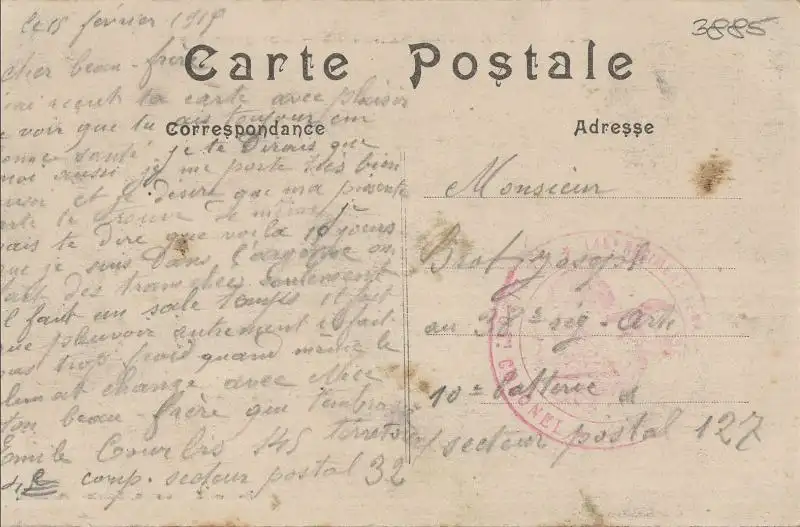 3885
le 15 février 191
cher beau-frère
Carte Postale
ta carte avec plaisir
voir que tu ais toujour em
Correspondance
santé je te Dirais que
moi aussi je me porte très bien
et je désire que ma présente
te trouve de même je
vais te dire que voila 10 jours
que je suis dans l'argonne on
fait des tranchées seulement
il fait un sale temps il fait
que pleuvoir autrement il fait
pas trop froid quand même le
climat change avec Nice
ton beau-frère qui t'embrasse
Emile 145 territo
comp. secteur postal 32
Adresse
Monsieur
Joseph
au 38e rég. Art
10e batterie
secteur postal 127